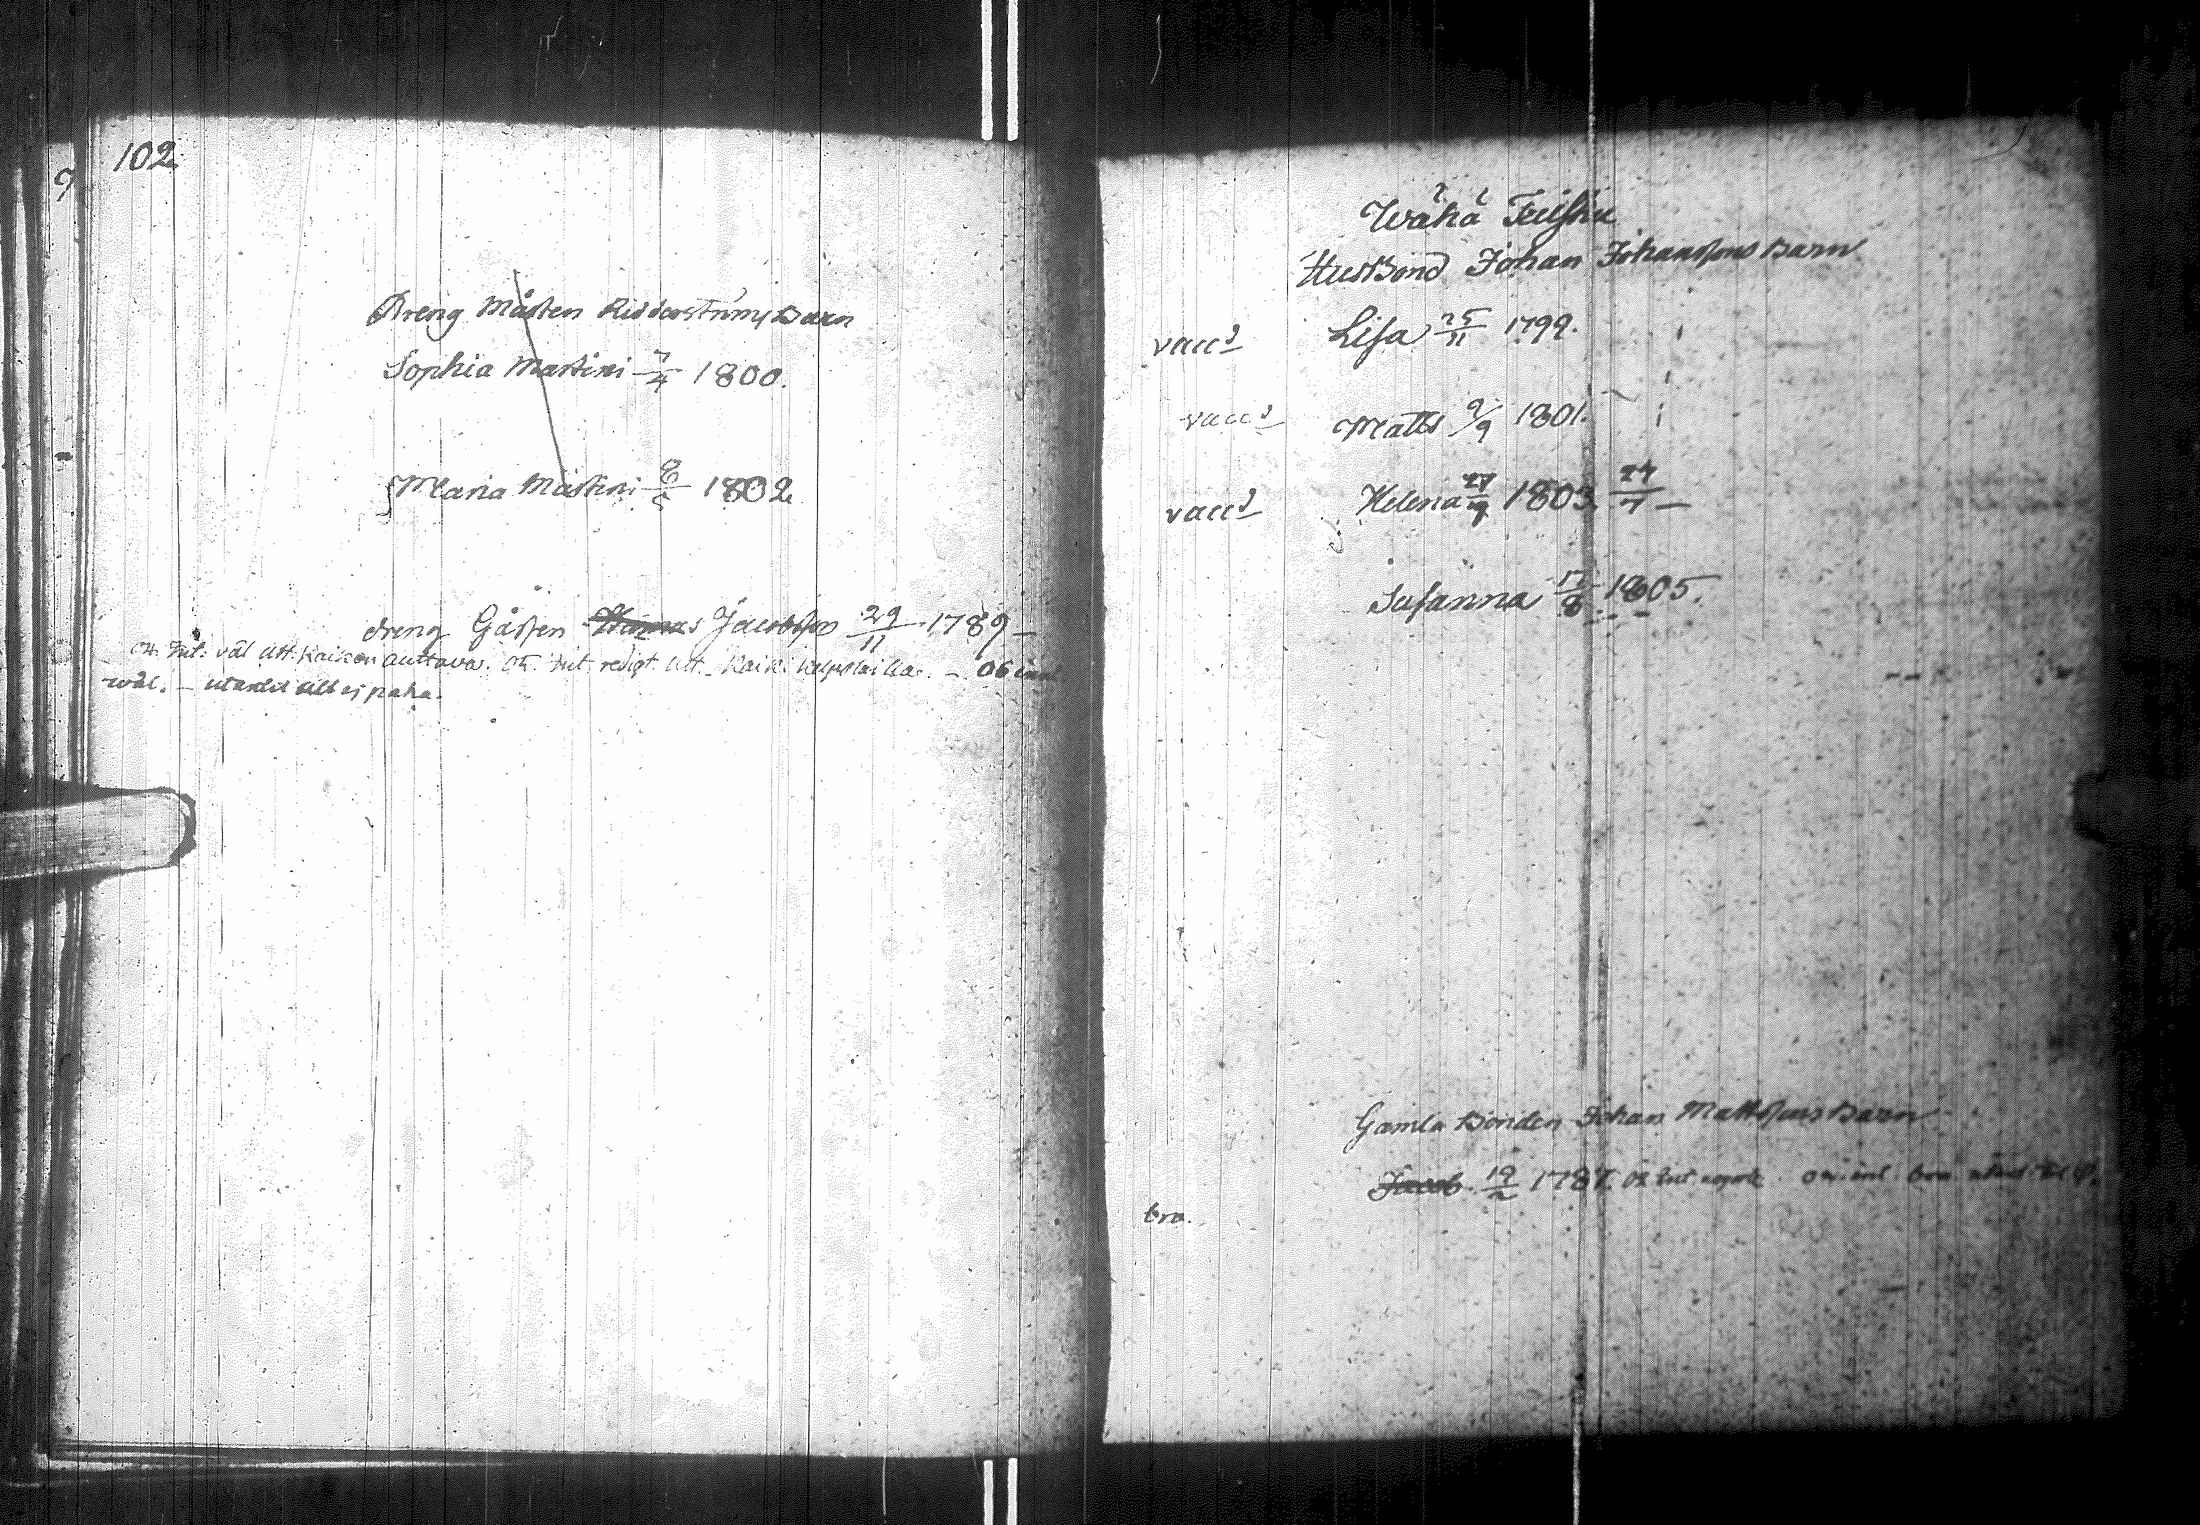 102
Dreng Mårten Ridderströms Barn
Sophia Martini 7/4 1800.
Maria Martini 8/5 1802
dreng Gåssen Thomas Jacobsson 29/11 1789 –
Int. väl utt. kaicken auttava. Int. redigt utt. – 06
wäl. – utantil all ej paha.
Wähä Teisku
Husbond Johan Johanssons Barn
vacc: Lisa 25/11 1799.
vacc: Matts 9/9 1801.
vacc: Helena 27/9 1803. 24/7 –
Susanna 17/8 1805.
Gamla Bonden Johan Mattssons Barn
Jacob 19/2 1787.
bra.